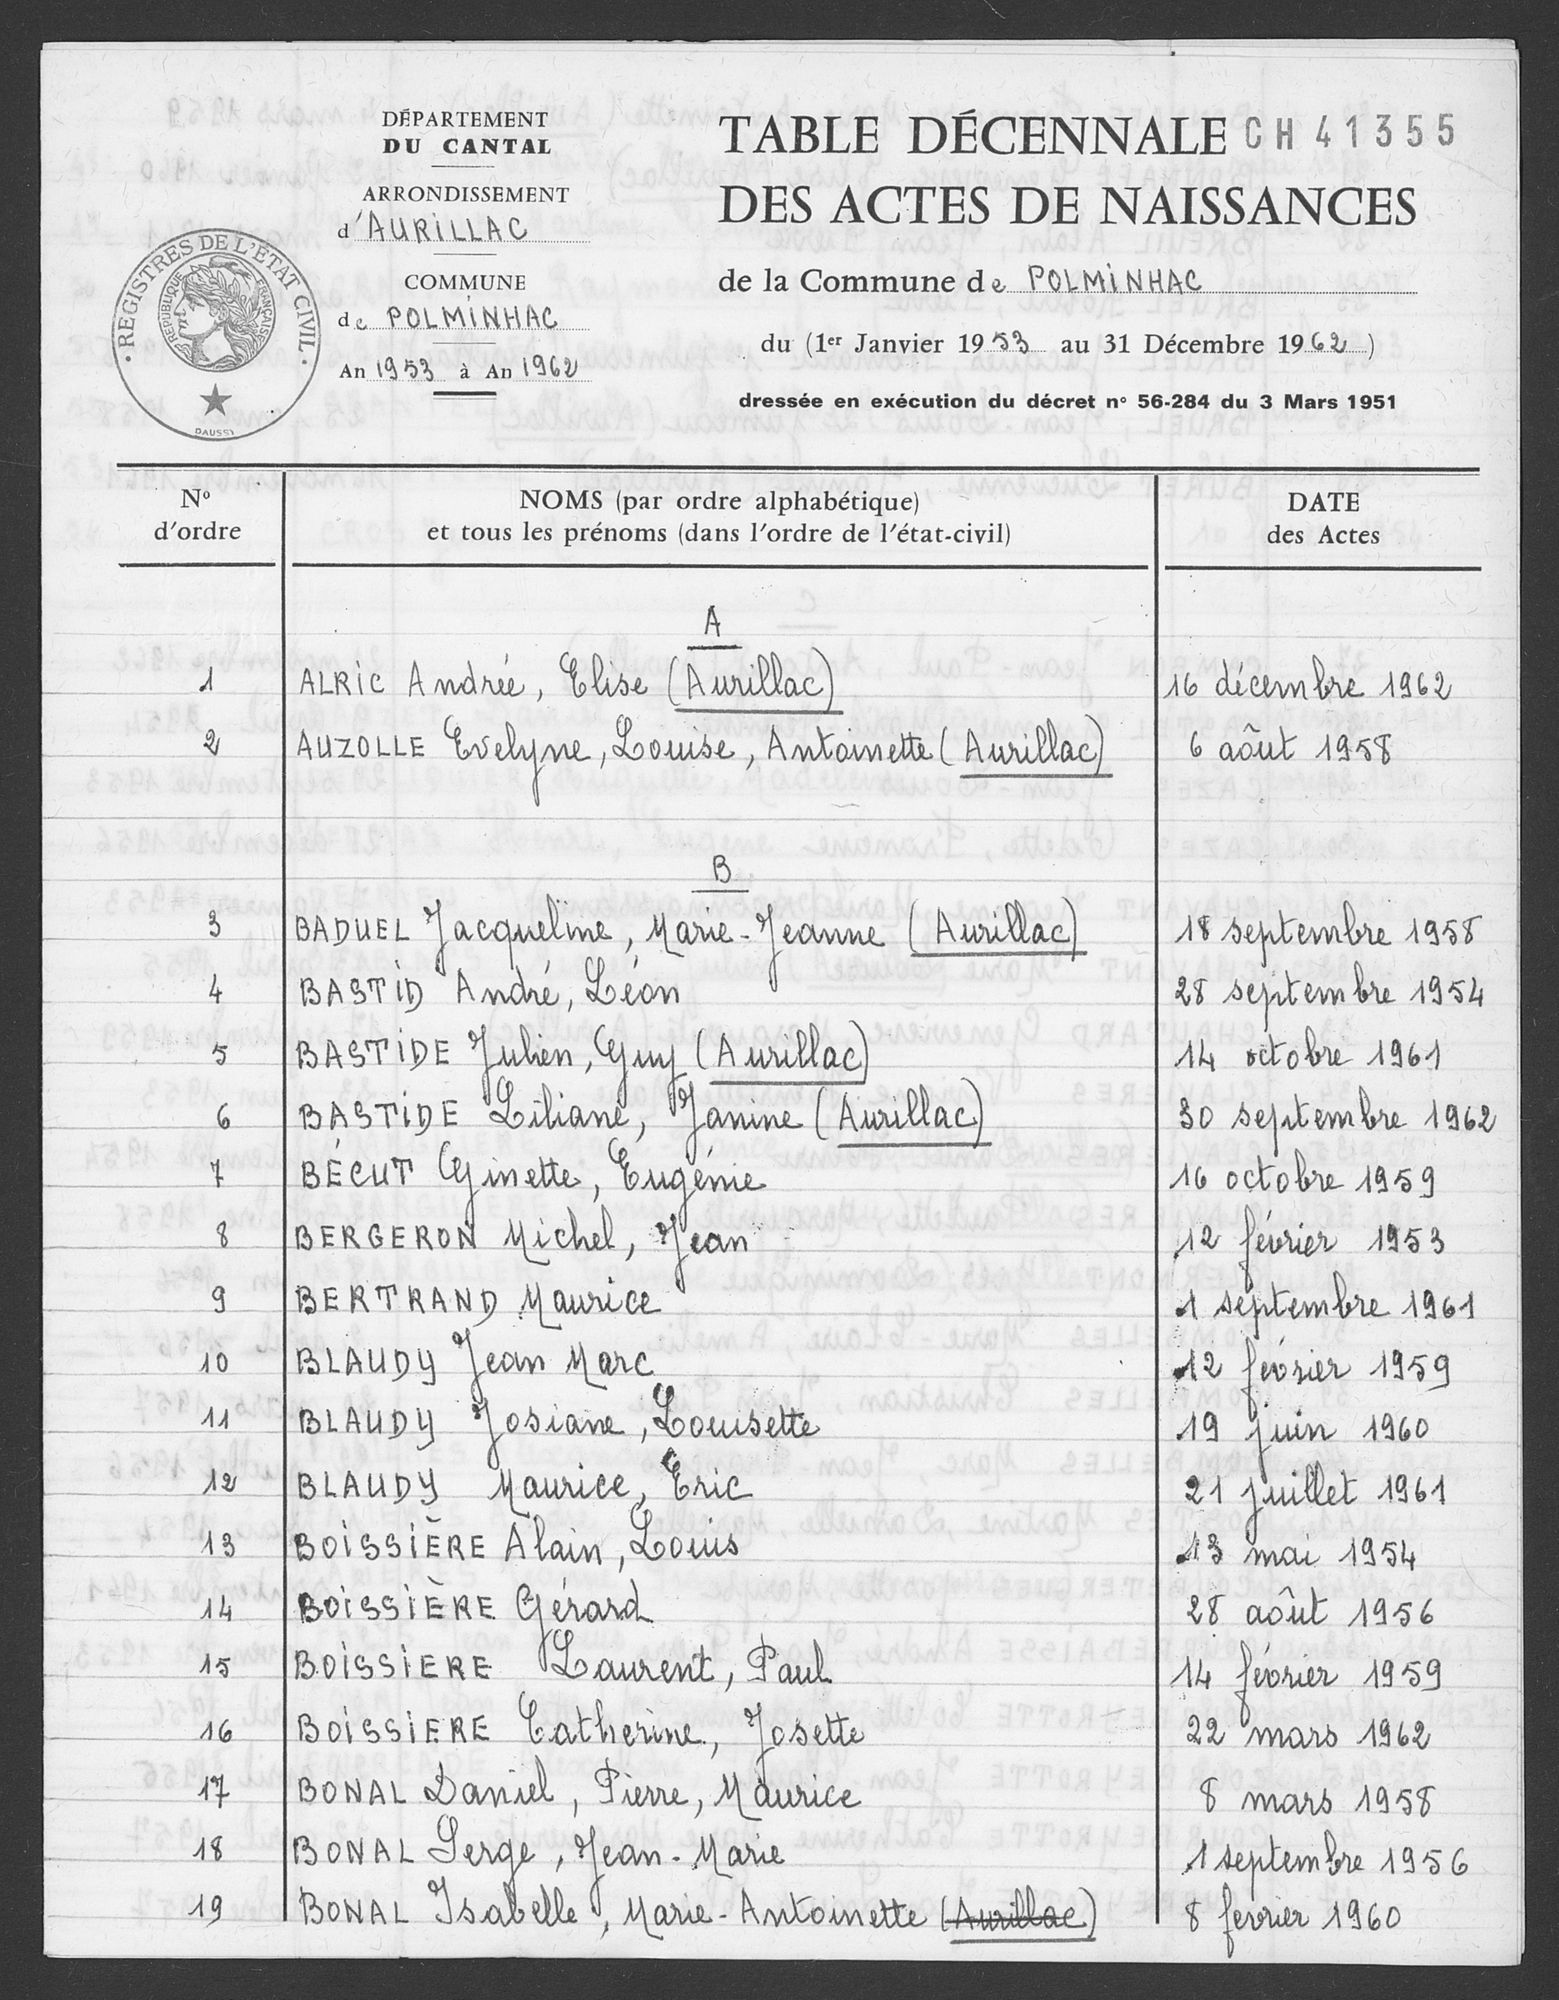 DÉPARTEMENT
DU CANTAL
ARRONDISSEMENT
d'AURILLAC
COMMUNE
de POLMINHAC
An 1953 à An 1962
REGISTRES DE L'ÉTAT CIVIL
RÉPUBLIQUE FRANÇAISE
DAUSSY
TABLE DÉCENNALE CH 41355
DES ACTES DE NAISSANCES
de la Commune de POLMINHAC
du (1er Janvier 1953 au 31 Décembre 1962)
dressée en exécution du décret n° 56-284 du 3 Mars 1951
N° d'ordre
NOMS (par ordre alphabétique)
et tous les prénoms (dans l'ordre de l'état-civil)
DATE
des Actes
A
1 ALRIC Andrée, Elise (Aurillac) 16 décembre 1962
2 AUZOLLE Evelyne, Louise, Antoinette (Aurillac) 6 aôut 1958
B
3 BADUEL Jacqueline, Marie-Jeanne (Aurillac) 18 septembre 1958
4 BASTID André, Léon 28 septembre 1954
5 BASTIDE Julien, Guy (Aurillac) 14 octobre 1961
6 BASTIDE Liliane, Janine (Aurillac) 30 septembre 1962
7 BÉCUT Ginette, Eugénie 16 octobre 1959
8 BERGERON Michel, Jean 12 février 1953
9 BERTRAND Maurice 1 septembre 1961
10 BLAUDY Jean Marc 12 février 1959
11 BLAUDY Josiane, Louisette 19 juin 1960
12 BLAUDY Maurice, Eric 21 juillet 1961
13 BOISSIÈRE Alain, Louis 13 mai 1954
14 BOISSIÈRE Gérard 28 aôut 1956
15 BOISSIERE Laurent, Paul 14 février 1959
16 BOISSIERE Catherine, Josette 22 mars 1962
17 BONAL Daniel, Pierre, Maurice 8 mars 1958
18 BONAL Serge, Jean-Marie 1 septembre 1956
19 BONAL Isabelle, Marie-Antoinette (Aurillac) 8 fevrier 1960